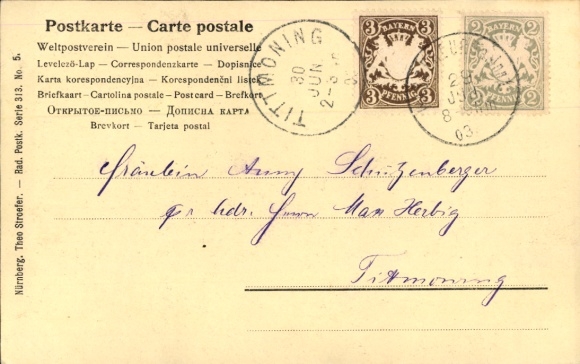 Postkarte — Carte postale
Weltpostverein — Union postale universelle
Levelező-Lap — Correspondenzkarte — Dopisnice
Karta korespondencyjna — Korespondenční lístek
Briefkaart - Cartolina postale - Postcard - Brefkort
Открытое-письмо — Дописна карта
Brevkort — Tarjeta postal
TITTMONING
30
JUN
2-3
3
BAYERN
3
3
PFENNIG
3
2
BAYERN
2
2
PFENNIG
2
8
03
Fräulein Anny Schützenberger
Herrn Max Herbig
Tittmoning
Nürnberg. Theo Stroefer. — Rad. Postk. Serie 313. No. 5.